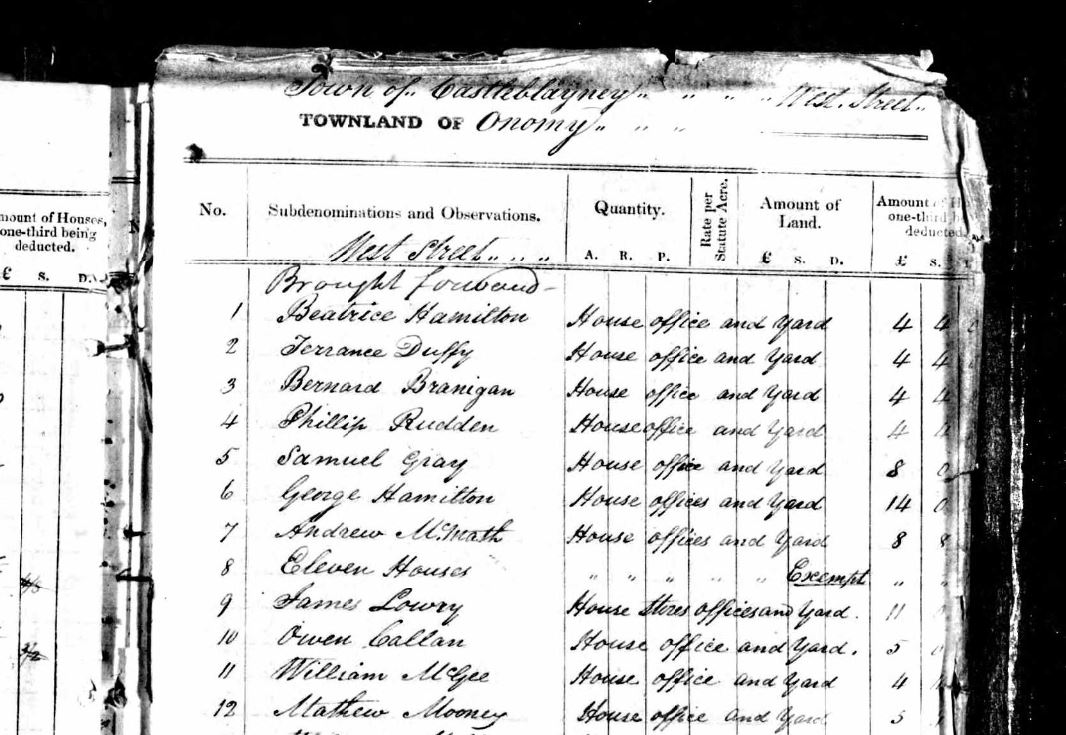 Town of Castleblayney " " " " West Street "
TOWNLAND OF Onomy " " "
No. Subdenominations and Observations. Quantity. Rate per Statute Acre. Amount of Land. Amount of one-third deducted.
West Street " " "
A. R. P. £ S. D. £ S.
Brought forward
1 Beatrice Hamilton House office and Yard 4 4
2 Terrance Duffy House office and Yard 4 4
3 Bernard Branigan House office and Yard 4 4
4 Phillip Rudden House office and Yard 4 4
5 Samuel Gray House office and Yard 8 0
6 George Hamilton House offices and Yard 14 0
7 Andrew McMath House offices and Yard 8 8
8 Eleven Houses " " " " " Exempt " "
9 James Lowry House Stores offices and Yard. 11 0
10 Owen Callan House office and Yard. 5 0
11 William McGee House office and Yard 4
12 Mathew Mooney House office and Yard 5
mount of Houses,
one-third being
deducted.
£ S. D.